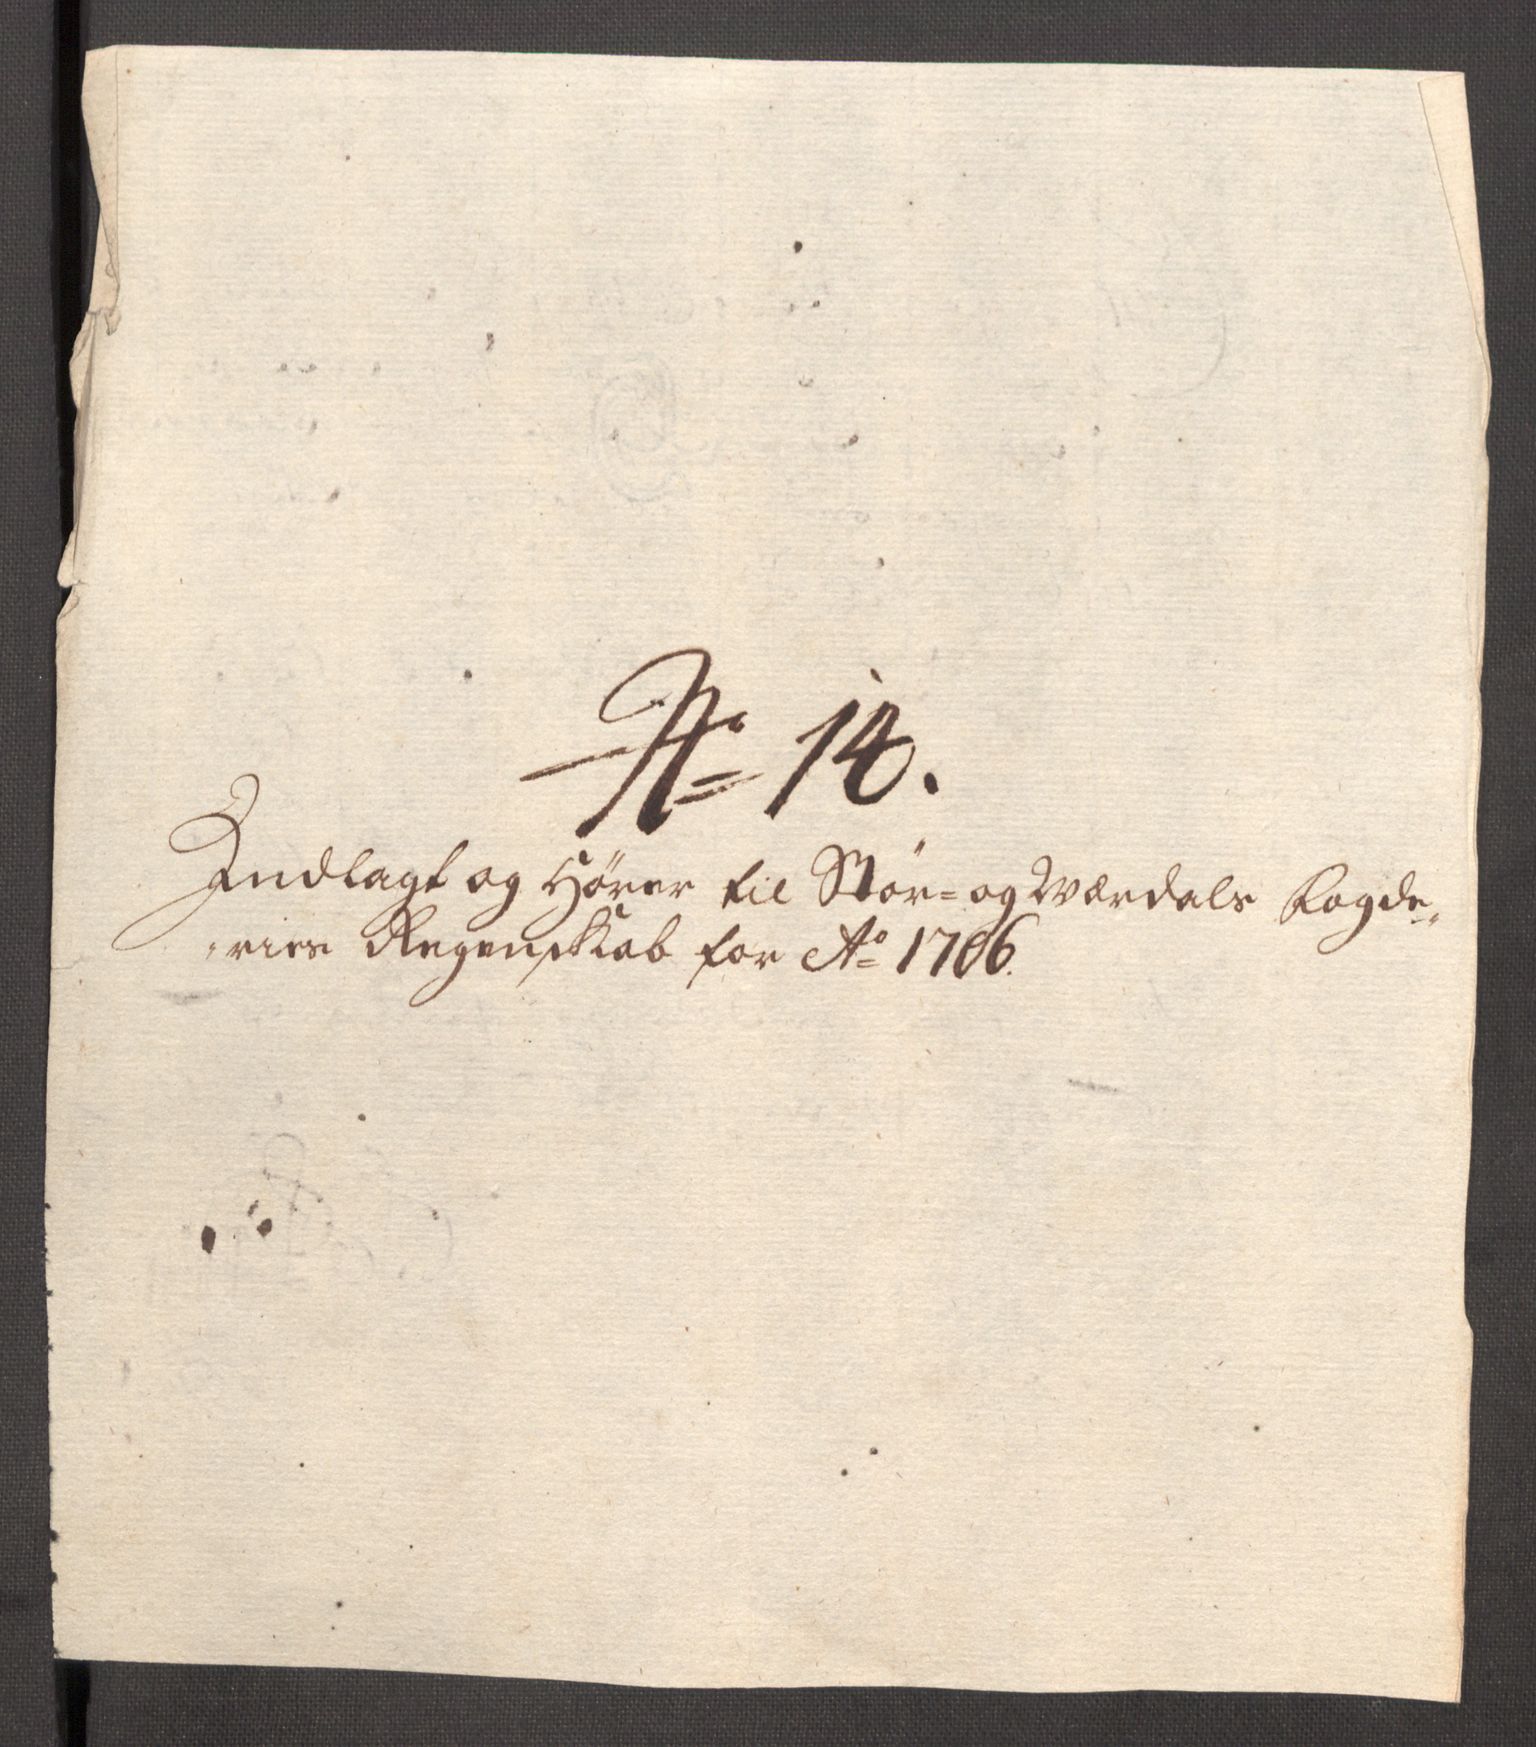 No= 14.
Indlagt og Hörer til Stör= og Værdals Fogde„
„ries Regenskab for Ao= 1706.